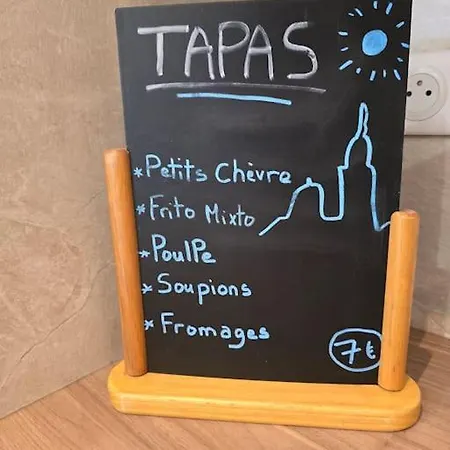 TAPAS
* Petits Chèvre
* Frito Mixto
* Poulpe
* Soupions
* Fromages
7€